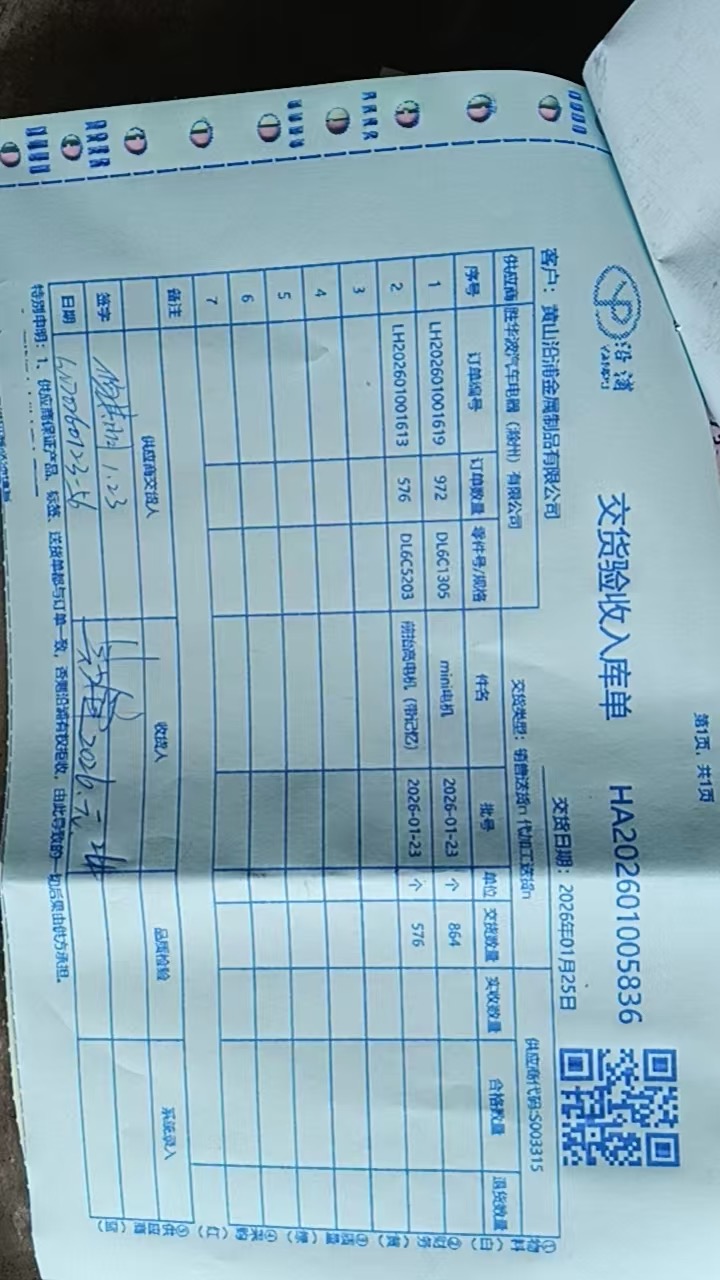 第1页，共1页
沿浦
YANPU
交货验收入库单 HA202601005836
客户：黄山沿浦金属制品有限公司 交货日期：2026年01月25日
供应商 胜华波汽车电器（滁州）有限公司 交货类型：销售送货n 代加工送货n 供应商代码:S003315
序号 订单编号 订单数量 零件号/规格 件名 批号 单位 交货数量 实收数量 合格数量 退货数量
1 LH202601001619 972 DL6C1305 mini电机 2026-01-23 个 864
2 LH202601001613 576 DL6C5203 前抬高电机（带记忆） 2026-01-23 个 576
3
4
5
6
7
备注 供应商交货人 收货人 品质检验 系统录入
签字 1.23
日期
特别申明：1、供应商保证产品、标签、送货单都与订单一致，否则沿浦有权拒收，由此导致的一切后果由供方承担。
①物料（白）
②财务（黄）
③结（绿）
④采购（红）
⑤供应商（蓝）